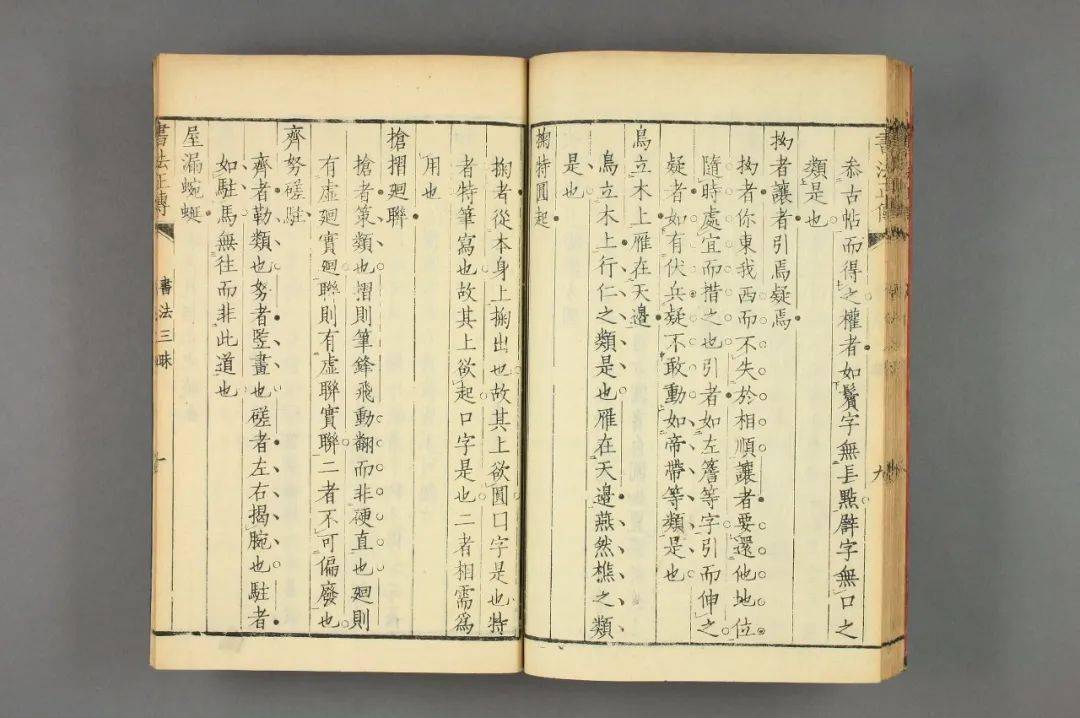 書法正傳
叅古帖而得之權者如鬢字無長點辟字無口之
類是也
拗者讓者引焉疑焉
拗者你東我西而不失於相順讓者要還他地位
隨時處宜而措之也引者如左簷等字引而伸之
疑者如有伏兵疑不敢動如帝帶等類是也
鳥立木上雁在天邊
鳥立木上行仁之類是也雁在天邊燕然樵之類
是也
掬特圓起
掬者從本身上掬出也故其上欲圓口字是也特
者特筆寫也故其上欲起口字是也二者相需爲
用也
搶摺廻聯
搶者策類也摺則筆鋒飛動翻而非硬直也廻則
有虛廻實廻聯則有虛聯實聯二者不可偏廢也
齊努磋駐
齊者勒類也努者豎畫也磋者左右揭腕也駐者
如駐馬無往而非此道也
屋漏蜿蜒
書法正傳
書法三昧